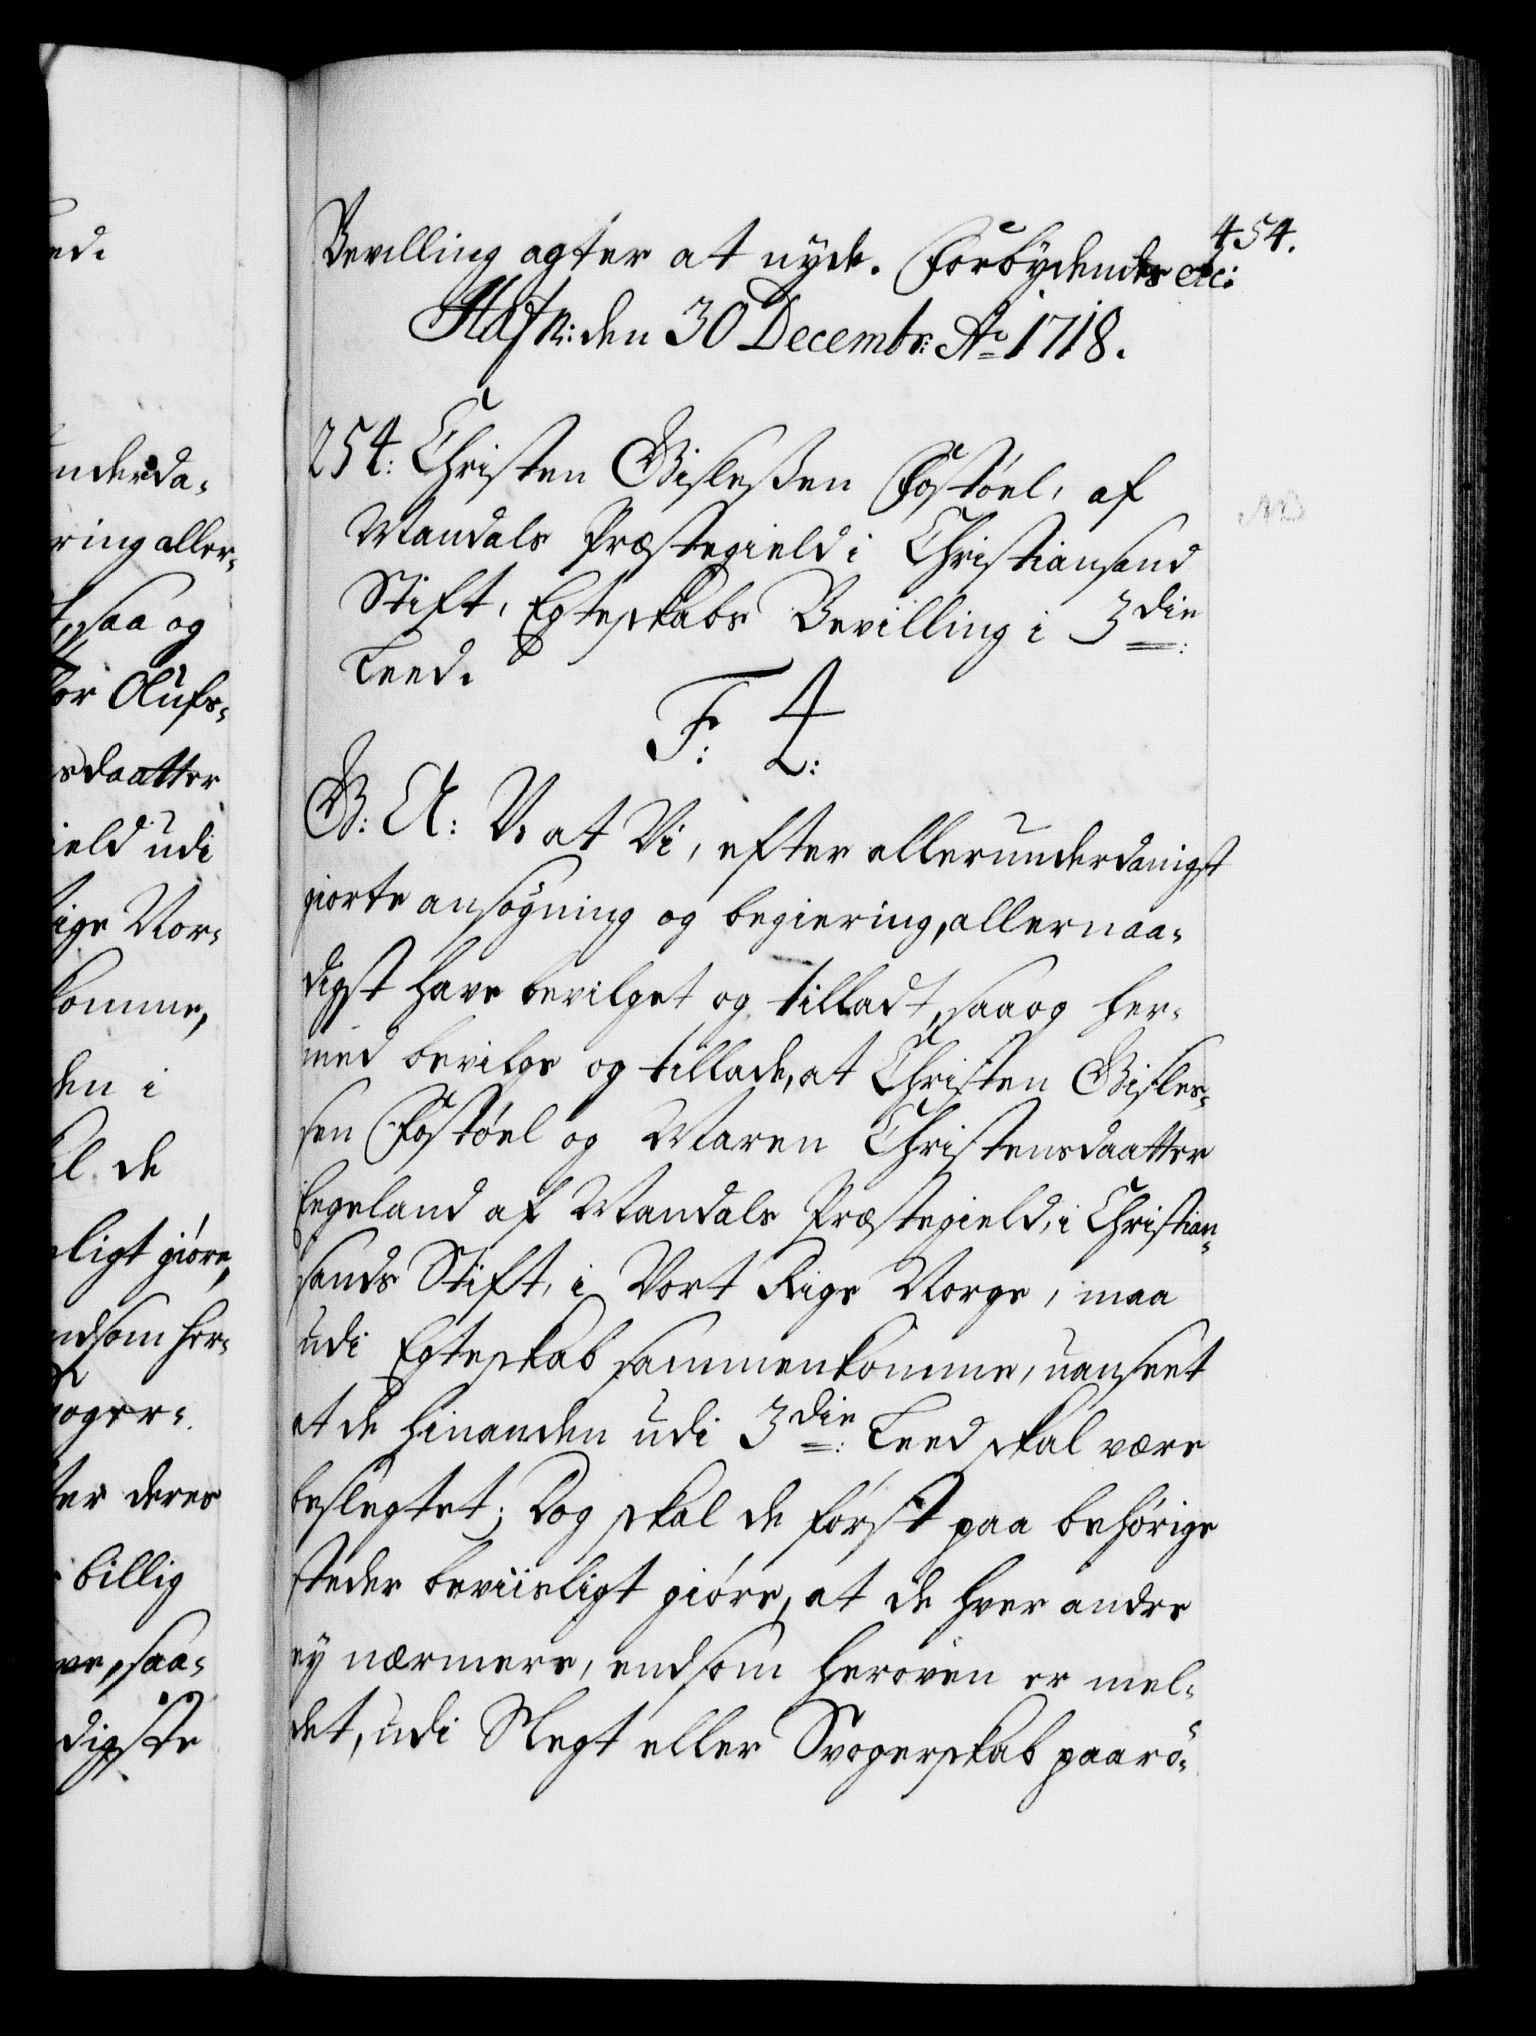 454.
Bevilling agter at nyde. Forbydendes etc:
Hafn: den 30 Decembr: Ao 1718.
254. Christen Gisleßen Fostöel, af
Mandals Præstegield i Christiansand
Stift, Egteskabs Bevilling i 3die
Leed.
F. 4.
G: A: V. at Vi, efter allerunderdanigst
giorte ansögning og begiering, allernaa-
digst have bevilget og tilladt, saa og her-
med bevilge og tillade, at Christen Gisles-
sen Fostöel og Maren Christensdaatter
Egeland af Mandals Præstegield, i Christian-
sands Stift, i Vort Rige Norge, maa
udi Egteskab sammenkomme, uanseet
at de hinanden udi 3die Leed skal være
beslegtet; Dog skal de först paa behörige
steder beviisligt giöre, at de hver andre
ey nærmere, end som heroven er mel-
det, udi Slegt eller Svogerskab paarö-
nderda-
ring aller-
saa og
Olufs-
sdaatter
ield udi
ige Nor-
komme,
den i
de
ligt giöre,
ndsom her-
voger-
ter deres
billig
ve, saa-
digste